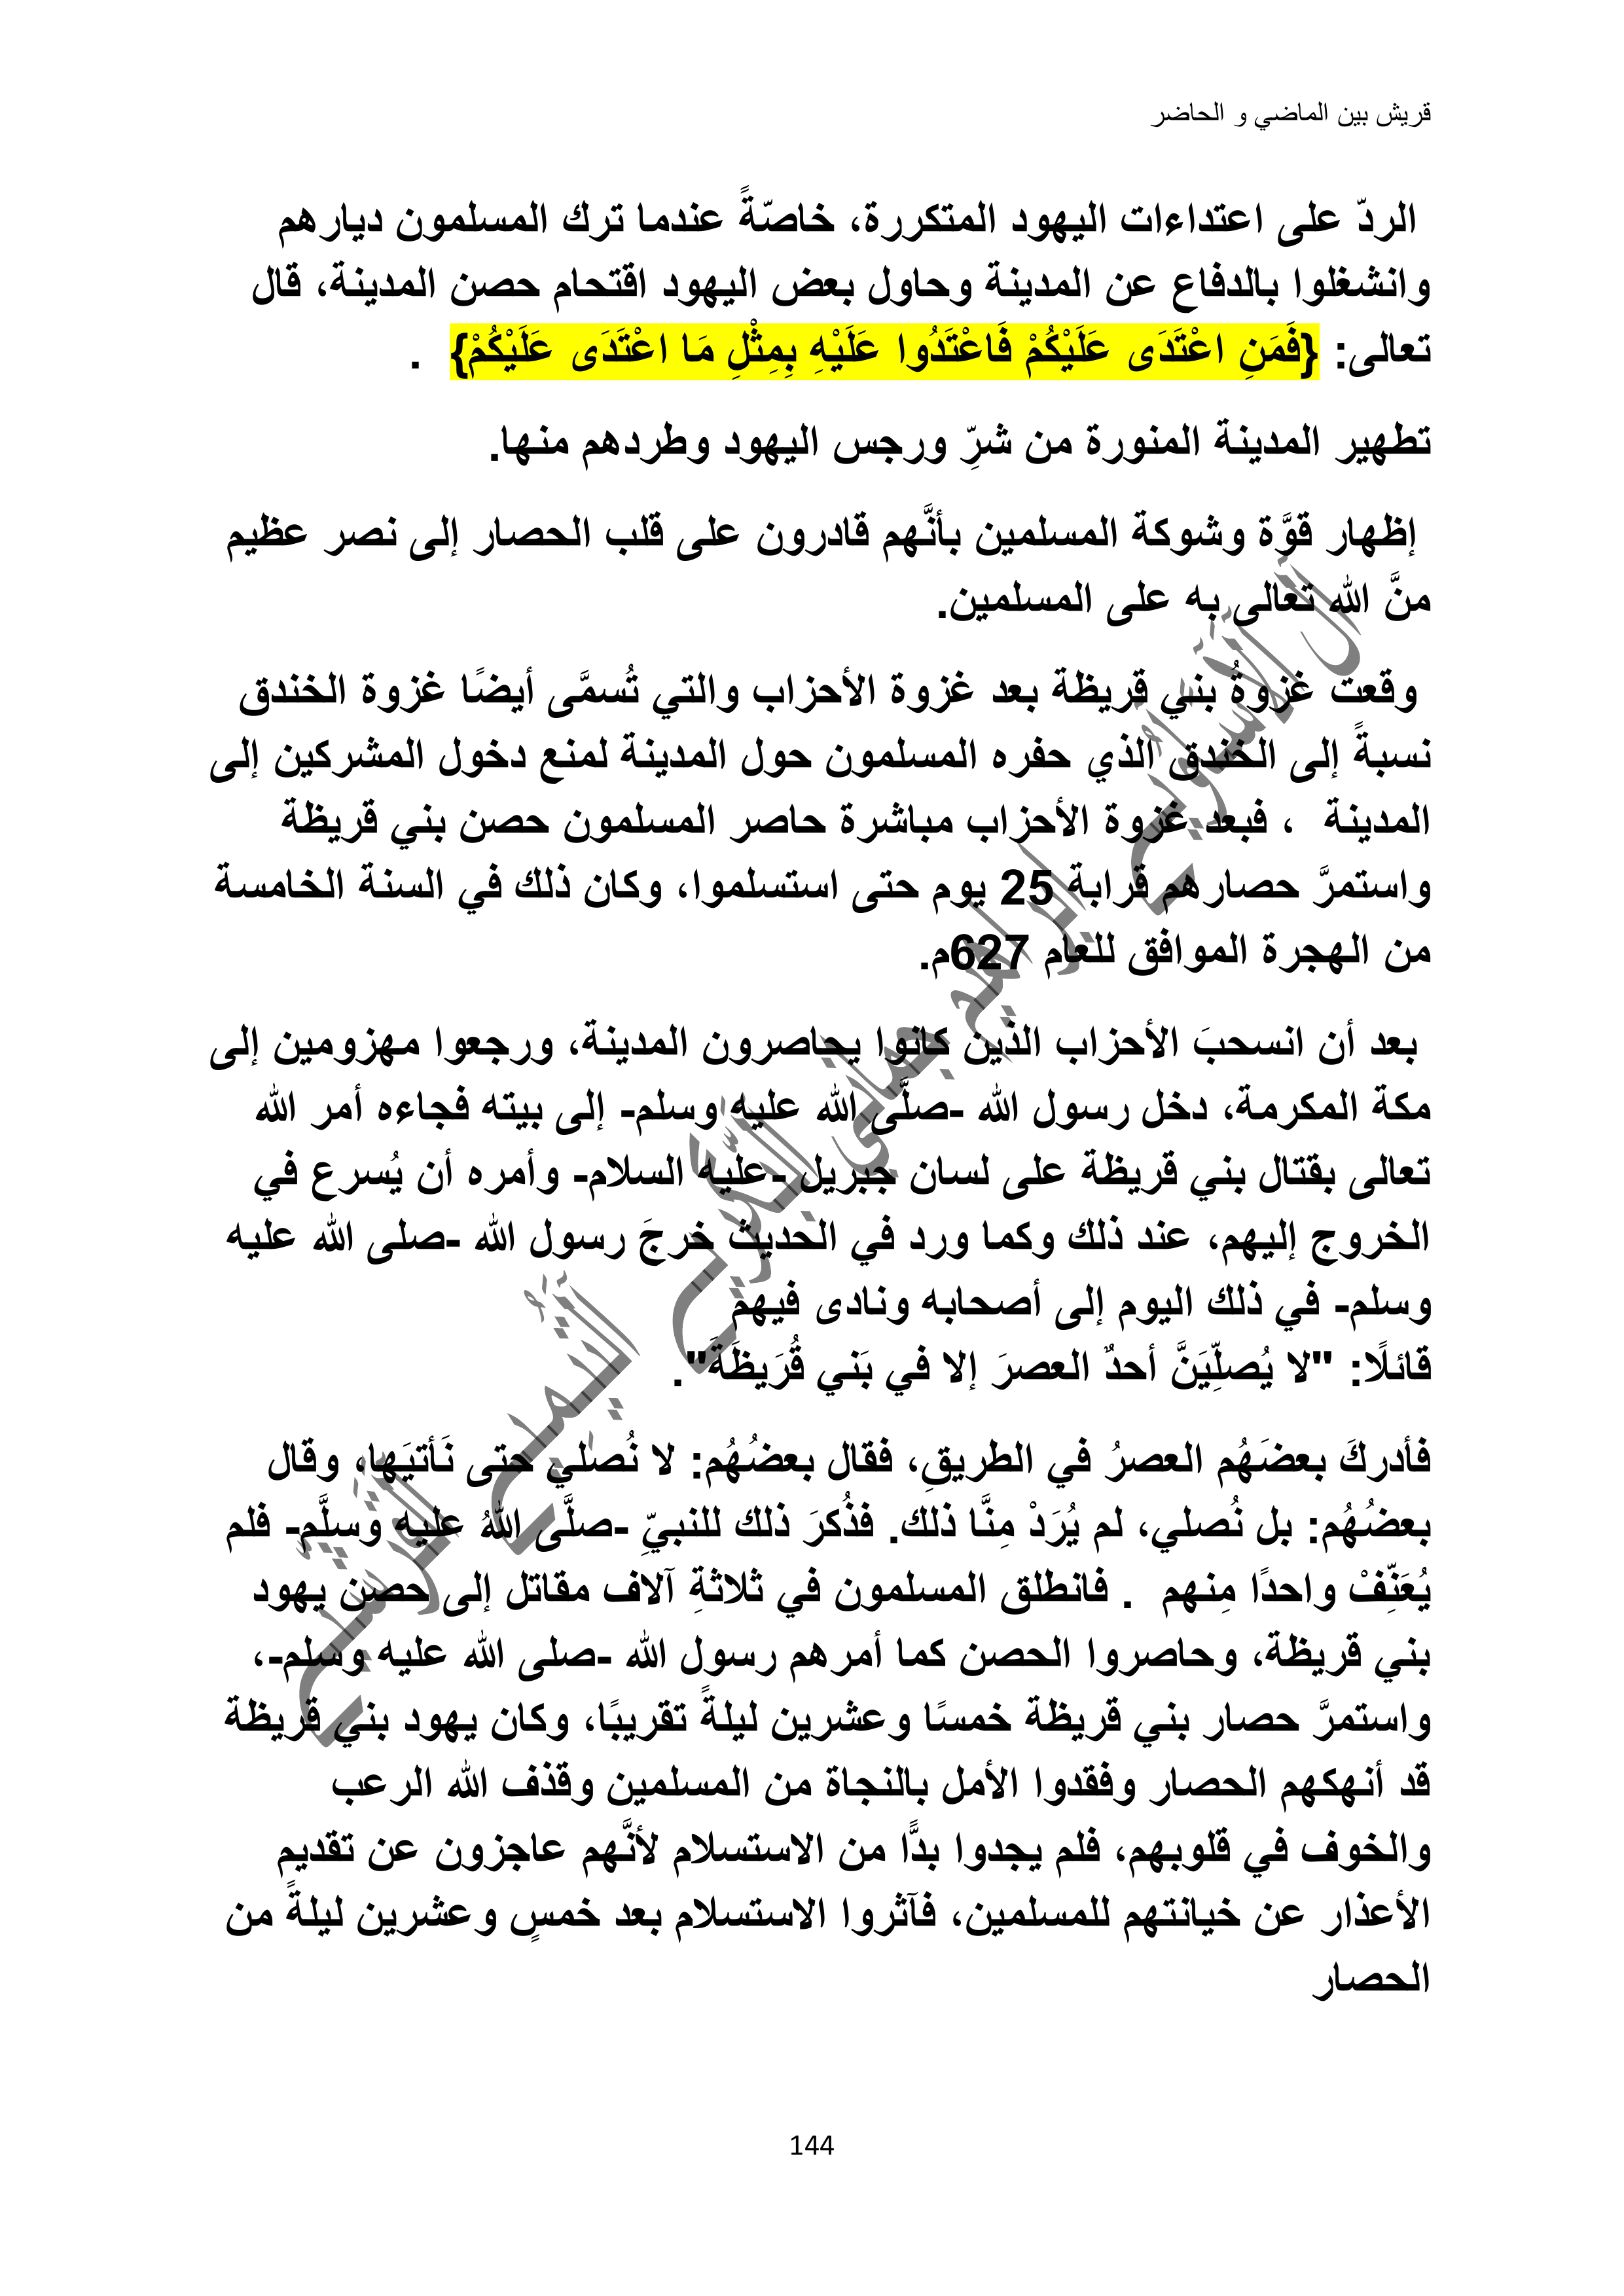 قريش بين الماضي و الحاضر
الردّ على اعتداءات اليهود المتكررة، خاصّةً عندما ترك المسلمون ديارهم
وانشغلوا بالدفاع عن المدينة وحاول بعض اليهود اقتحام حصن المدينة، قال
تعالى: {فَمَنِ اعْتَدَى عَلَيْكُمْ فَاعْتَدُوا عَلَيْهِ بِمِثْلِ مَا اعْتَدَى عَلَيْكُمْ} .
تطهير المدينة المنورة من شرِّ ورجس اليهود وطردهم منها.
إظهار قوَّة وشوكة المسلمين بأنَّهم قادرون على قلب الحصار إلى نصر عظيم
منَّ الله تعالى به على المسلمين.
وقعت غزوةُ بني قريظة بعد غزوة الأحزاب والتي تُسمَّى أيضًا غزوة الخندق
نسبةً إلى الخندق الذي حفره المسلمون حول المدينة لمنع دخول المشركين إلى
المدينة ، فبعد غزوة الأحزاب مباشرة حاصر المسلمون حصن بني قريظة
واستمرَّ حصارهم قرابة 25 يوم حتى استسلموا، وكان ذلك في السنة الخامسة
من الهجرة الموافق للعام 627م.
بعد أن انسحبَ الأحزاب الذين كانوا يحاصرون المدينة، ورجعوا مهزومين إلى
مكة المكرمة، دخل رسول الله -صلَّى الله عليه وسلم- إلى بيته فجاءه أمر الله
تعالى بقتال بني قريظة على لسان جبريل -عليه السلام- وأمره أن يُسرع في
الخروج إليهم، عند ذلك وكما ورد في الحديث خرجَ رسول الله -صلى الله عليه
وسلم- في ذلك اليوم إلى أصحابه ونادى فيهم
قائلًا: "لا يُصلِّيَنَّ أحدٌ العصرَ إلا في بَني قُرَيظَةَ" .
فأدركَ بعضَهُم العصرُ في الطريقِ، فقال بعضُهُم: لا نُصلي حتى نَأتيَها، وقال
بعضُهُم: بل نُصلي، لم يُرَدْ مِنَّا ذلك. فذُكرَ ذلك للنبيِّ -صلَّى اللهُ عليه وسلَّم- فلم
يُعَنِّفْ واحدًا مِنهم . فانطلق المسلمون في ثلاثةِ آلاف مقاتل إلى حصن يهود
بني قريظة، وحاصروا الحصن كما أمرهم رسول الله -صلى الله عليه وسلم-،
واستمرَّ حصار بني قريظة خمسًا وعشرين ليلةً تقريبًا، وكان يهود بني قريظة
قد أنهكهم الحصار وفقدوا الأمل بالنجاة من المسلمين وقذف الله الرعب
والخوف في قلوبهم، فلم يجدوا بدًّا من الاستسلام لأنَّهم عاجزون عن تقديم
الأعذار عن خيانتهم للمسلمين، فآثروا الاستسلام بعد خمسٍ وعشرين ليلةً من
الحصار
144